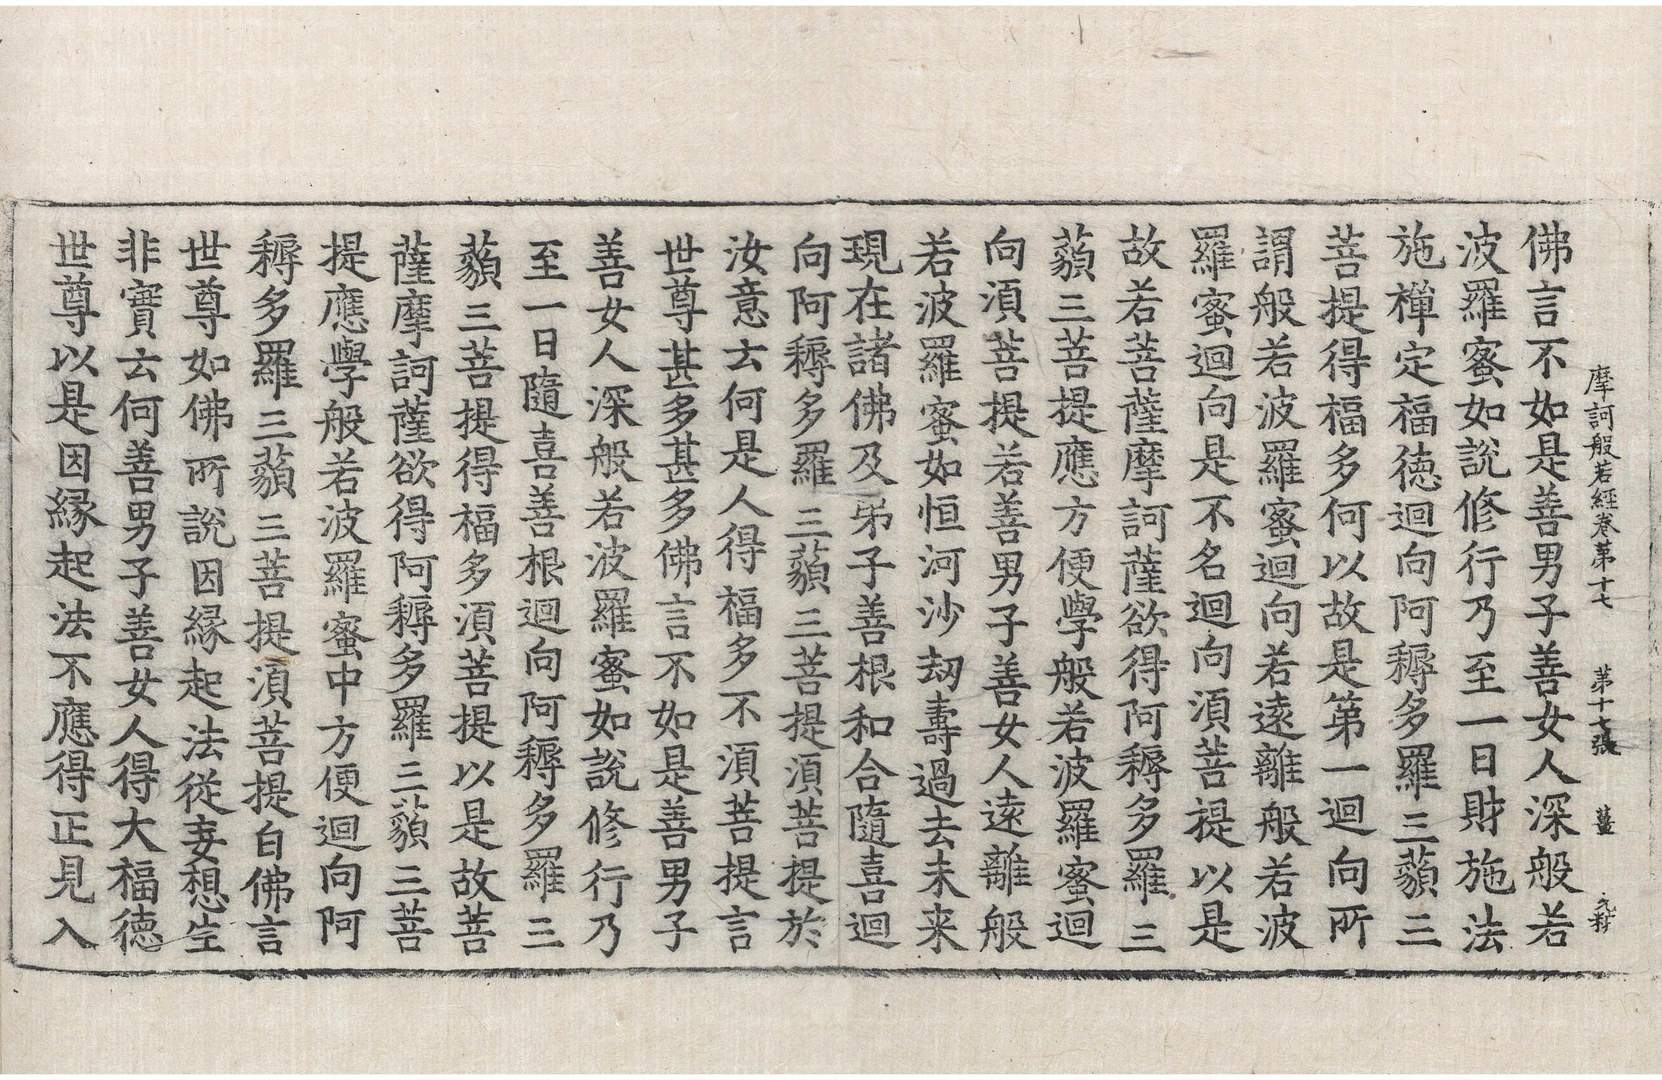 摩訶般若經卷第十七　第十七張　薑
佛言不如是善男子善女人深般若
波羅蜜如說修行乃至一日財施法
施禪定福德迴向阿耨多羅三藐三
菩提得福多何以故是第一迴向所
謂般若波羅蜜迴向若遠離般若波
羅蜜迴向是不名迴向須菩提以是
故若菩薩摩訶薩欲得阿耨多羅三
藐三菩提應方便學般若波羅蜜迴
向須菩提若善男子善女人遠離般
若波羅蜜如恒河沙劫壽過去未来
現在諸佛及弟子善根和合隨喜迴
向阿耨多羅三藐三菩提須菩提於
汝意云何是人得福多不須菩提言
世尊甚多甚多佛言不如是善男子
善女人深般若波羅蜜如說修行乃
至一日隨喜善根迴向阿耨多羅三
藐三菩提得福多須菩提以是故菩
薩摩訶薩欲得阿耨多羅三藐三菩
提應學般若波羅蜜中方便迴向阿
耨多羅三藐三菩提須菩提白佛言
世尊如佛所說因緣起法從妄想生
非實云何善男子善女人得大福德
世尊以是因緣起法不應得正見入